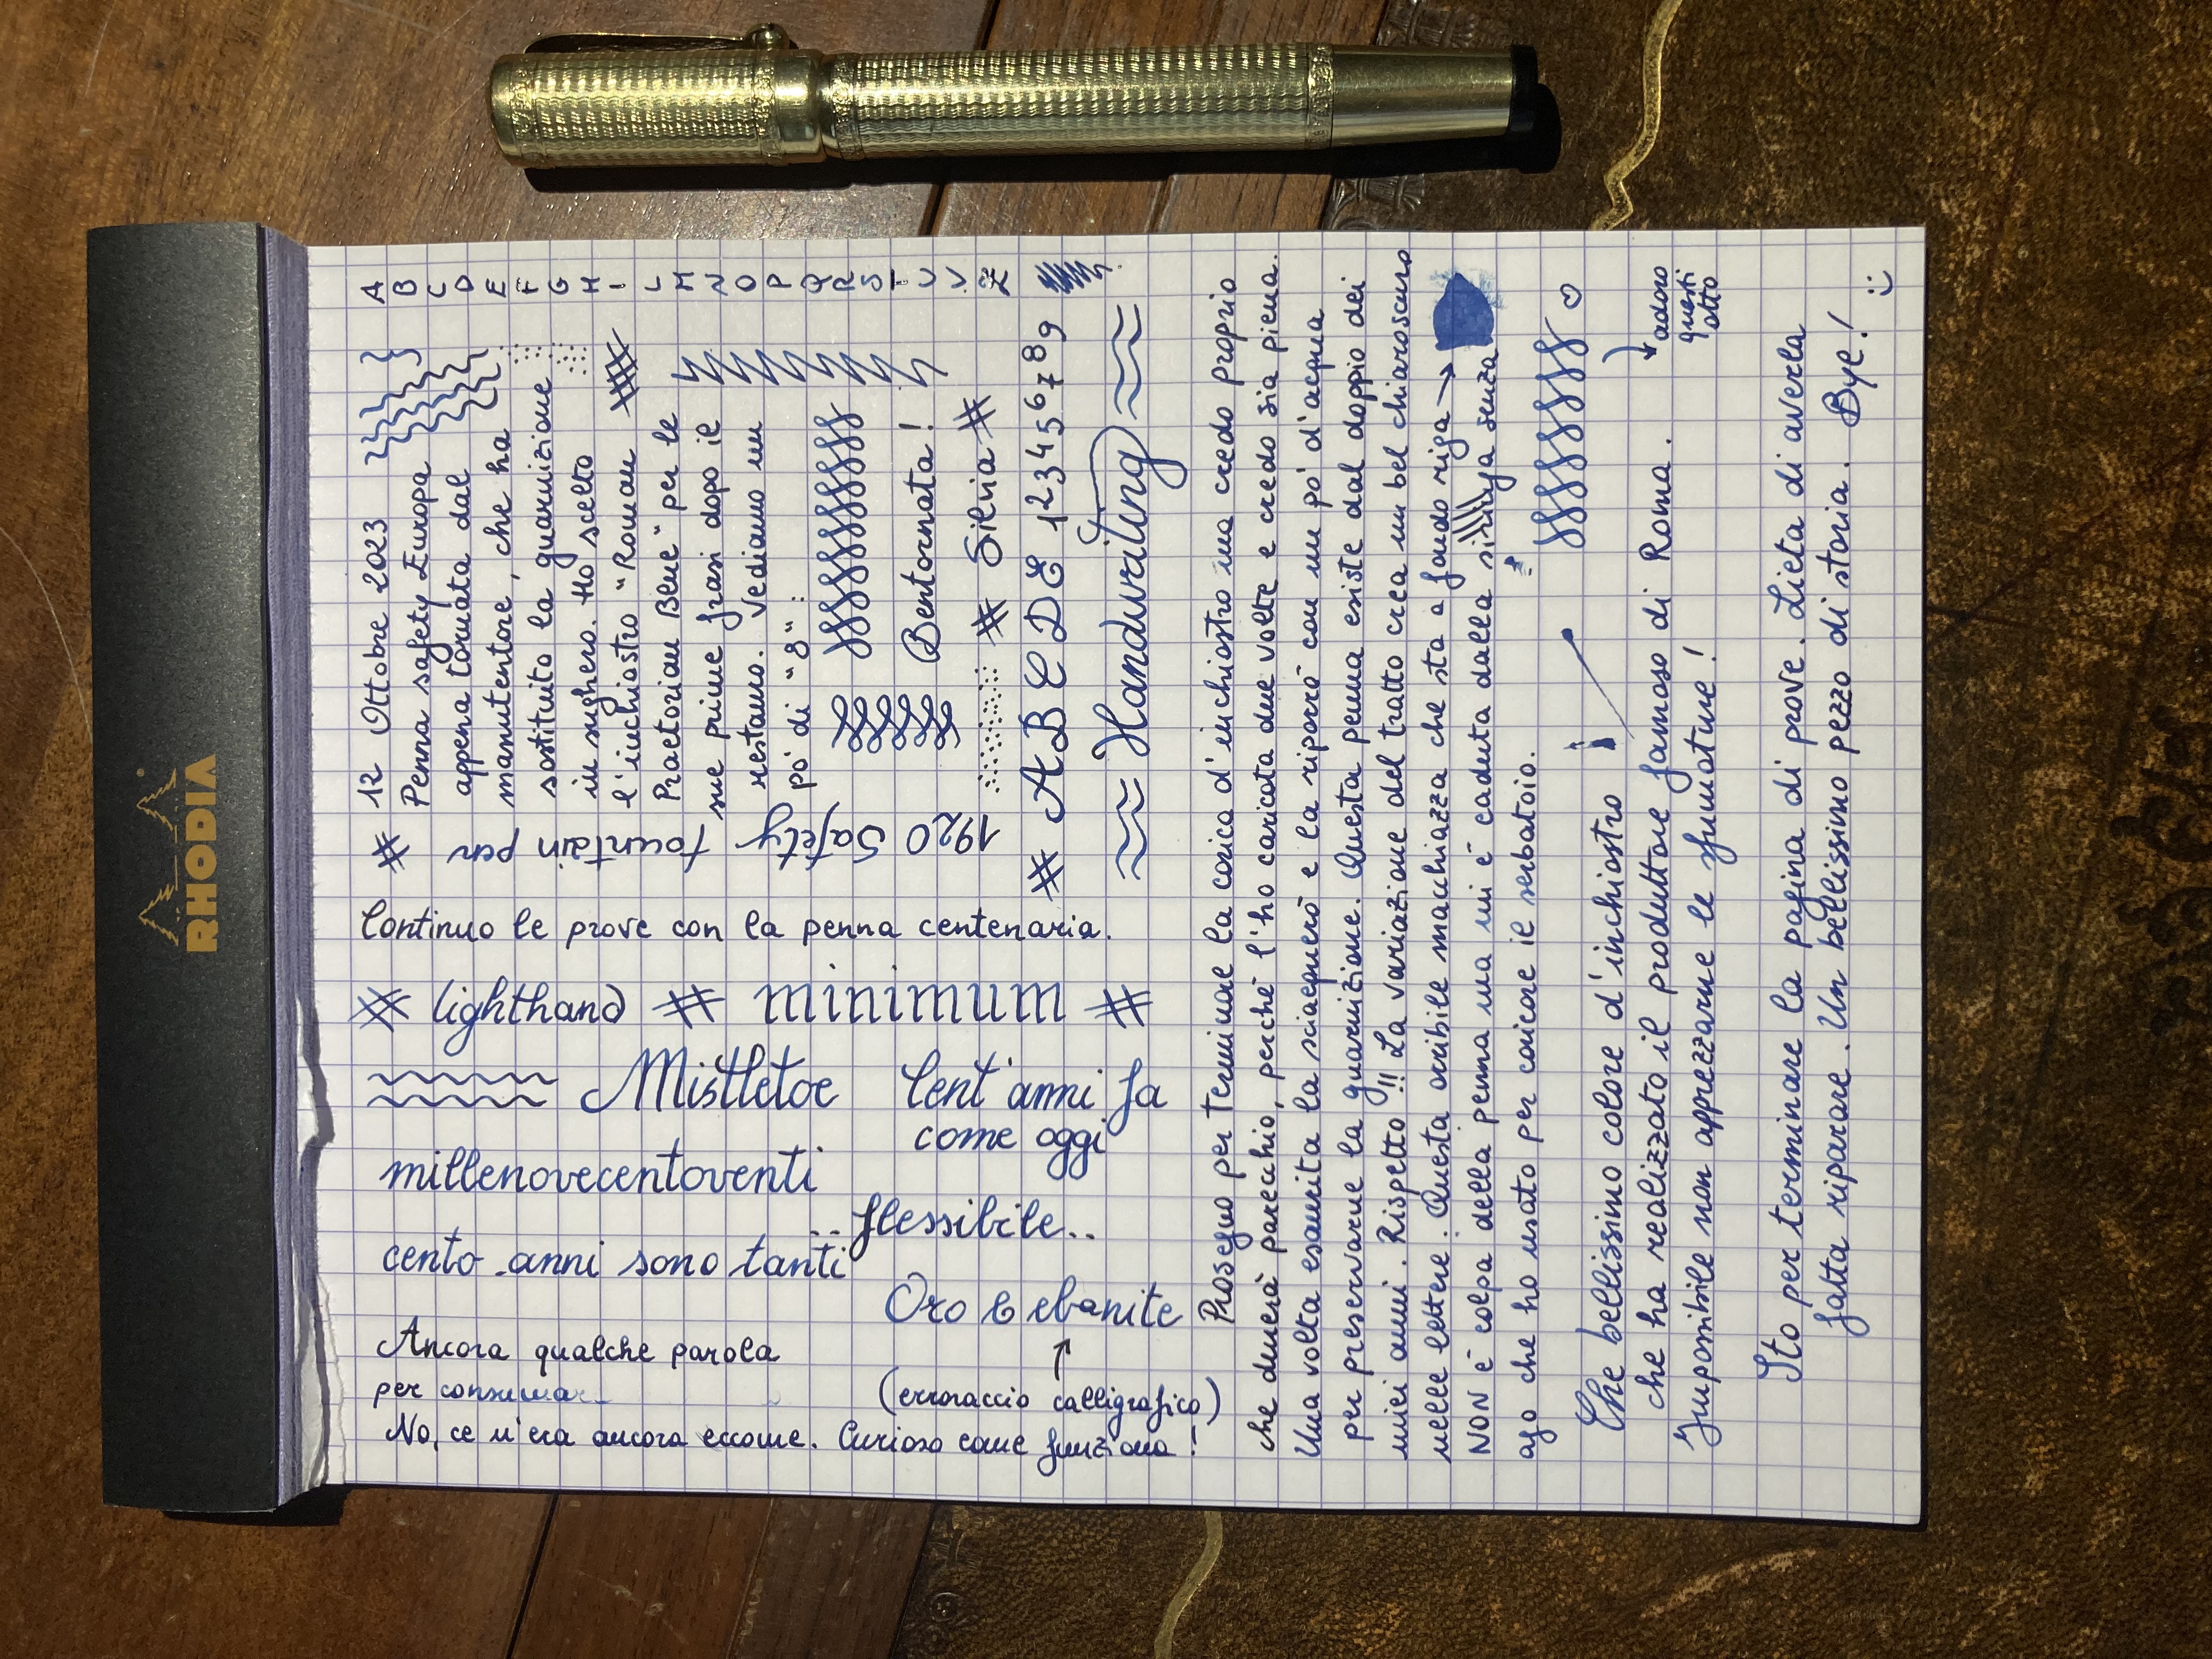 RHODIA
# 12 Ottobre 2023
Penna safety Europa
appena tornata dal
manutentore, che ha
sostituito la guarnizione
in sughero. Ho scelto
l'inchiostro "Roman
Praetorian Blue" per le
mie prime frasi dopo il
restauro. Vediamo un
po' di "8":
Bentornata!
# Silvia #
# A B C D E 1 2 3 4 5 6 7 8 9
Handwriting
A
B
C
D
E
F
G
H
I
L
M
N
O
P
Q
R
S
T
U
V
Z
1920 Safety fountain pen
Continuo le prove con la penna centenaria.
# lighthand # minimum #
Mistletoe
Cent'anni fa
come oggi
millenovecentoventi
..flessibile..
cento anni sono tanti
Oro E ebanite
Ancora qualche parola
per consumar
(erroraccio calligrafico)
No, ce n'era ancora eccome. Curioso come funziona!
Proseguo per terminare la carica d'inchiostro ma credo proprio
che durerà parecchio, perché l'ho caricata due volte e credo sia piena.
Una volta esaurita la sciacquerò e la riporrò con un po' d'acqua
per preservarne la guarnizione. Questa penna esiste dal doppio dei
miei anni. Rispetto!! La variazione del tratto crea un bel chiaroscuro
nelle lettere. Questa orribile macchiazza che sta a fondo riga →
NON è colpa della penna ma mi è caduta dalla siringa senza
ago che ho usato per caricare il serbatoio.
Che bellissimo colore d'inchiostro
che ha realizzato il produttore famoso di Roma.
Impossibile non apprezzarne le sfumature!
adoro
questi
otto
Sto per terminare la pagina di prove. Lieta di averla
fatta riparare. Un bellissimo pezzo di storia. Bye!
:)